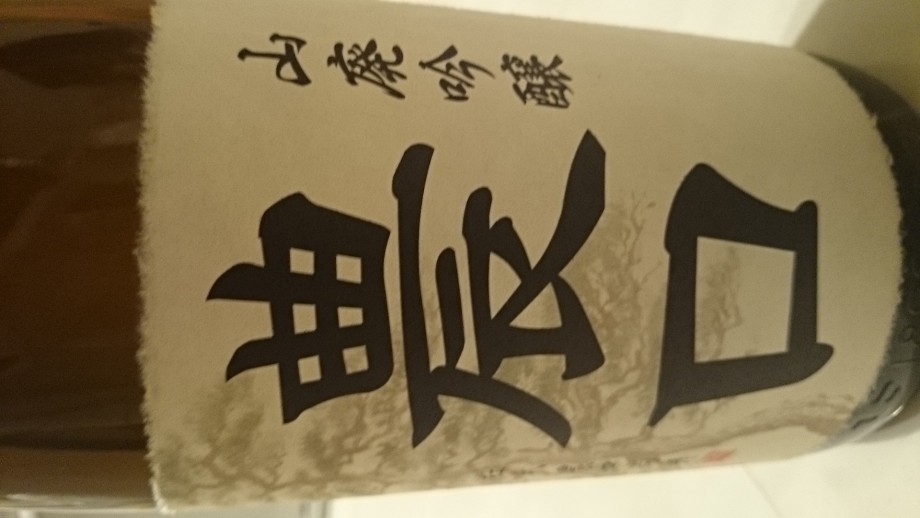 山廃吟醸
農口